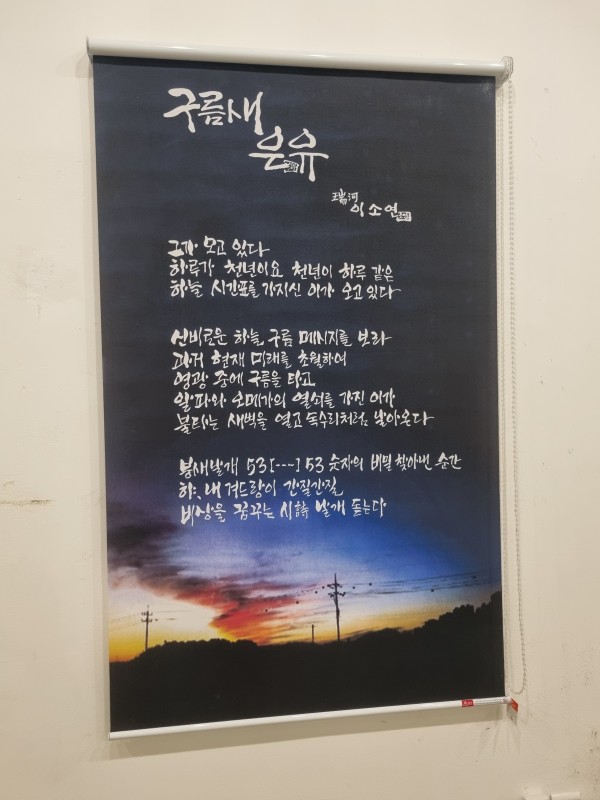 구름새
은유
瑞河 이소연
그가 오고 있다
하루가 천년이요 천년이 하루 같은
하늘 시간표를 가지신 이가 오고 있다
신비로운 하늘 구름 메시지를 보라
과거 현재 미래를 초월하여
영광 중에 구름을 타고
알파와 오메가의 열쇠를 가진 이가
불타는 새벽을 열고 독수리처럼 날아온다
붕새날개 53[---] 53 숫자의 비밀 찾아낸 순간
하, 내 겨드랑이 간질간질
비상을 꿈꾸는 시詩 날개 돋는다